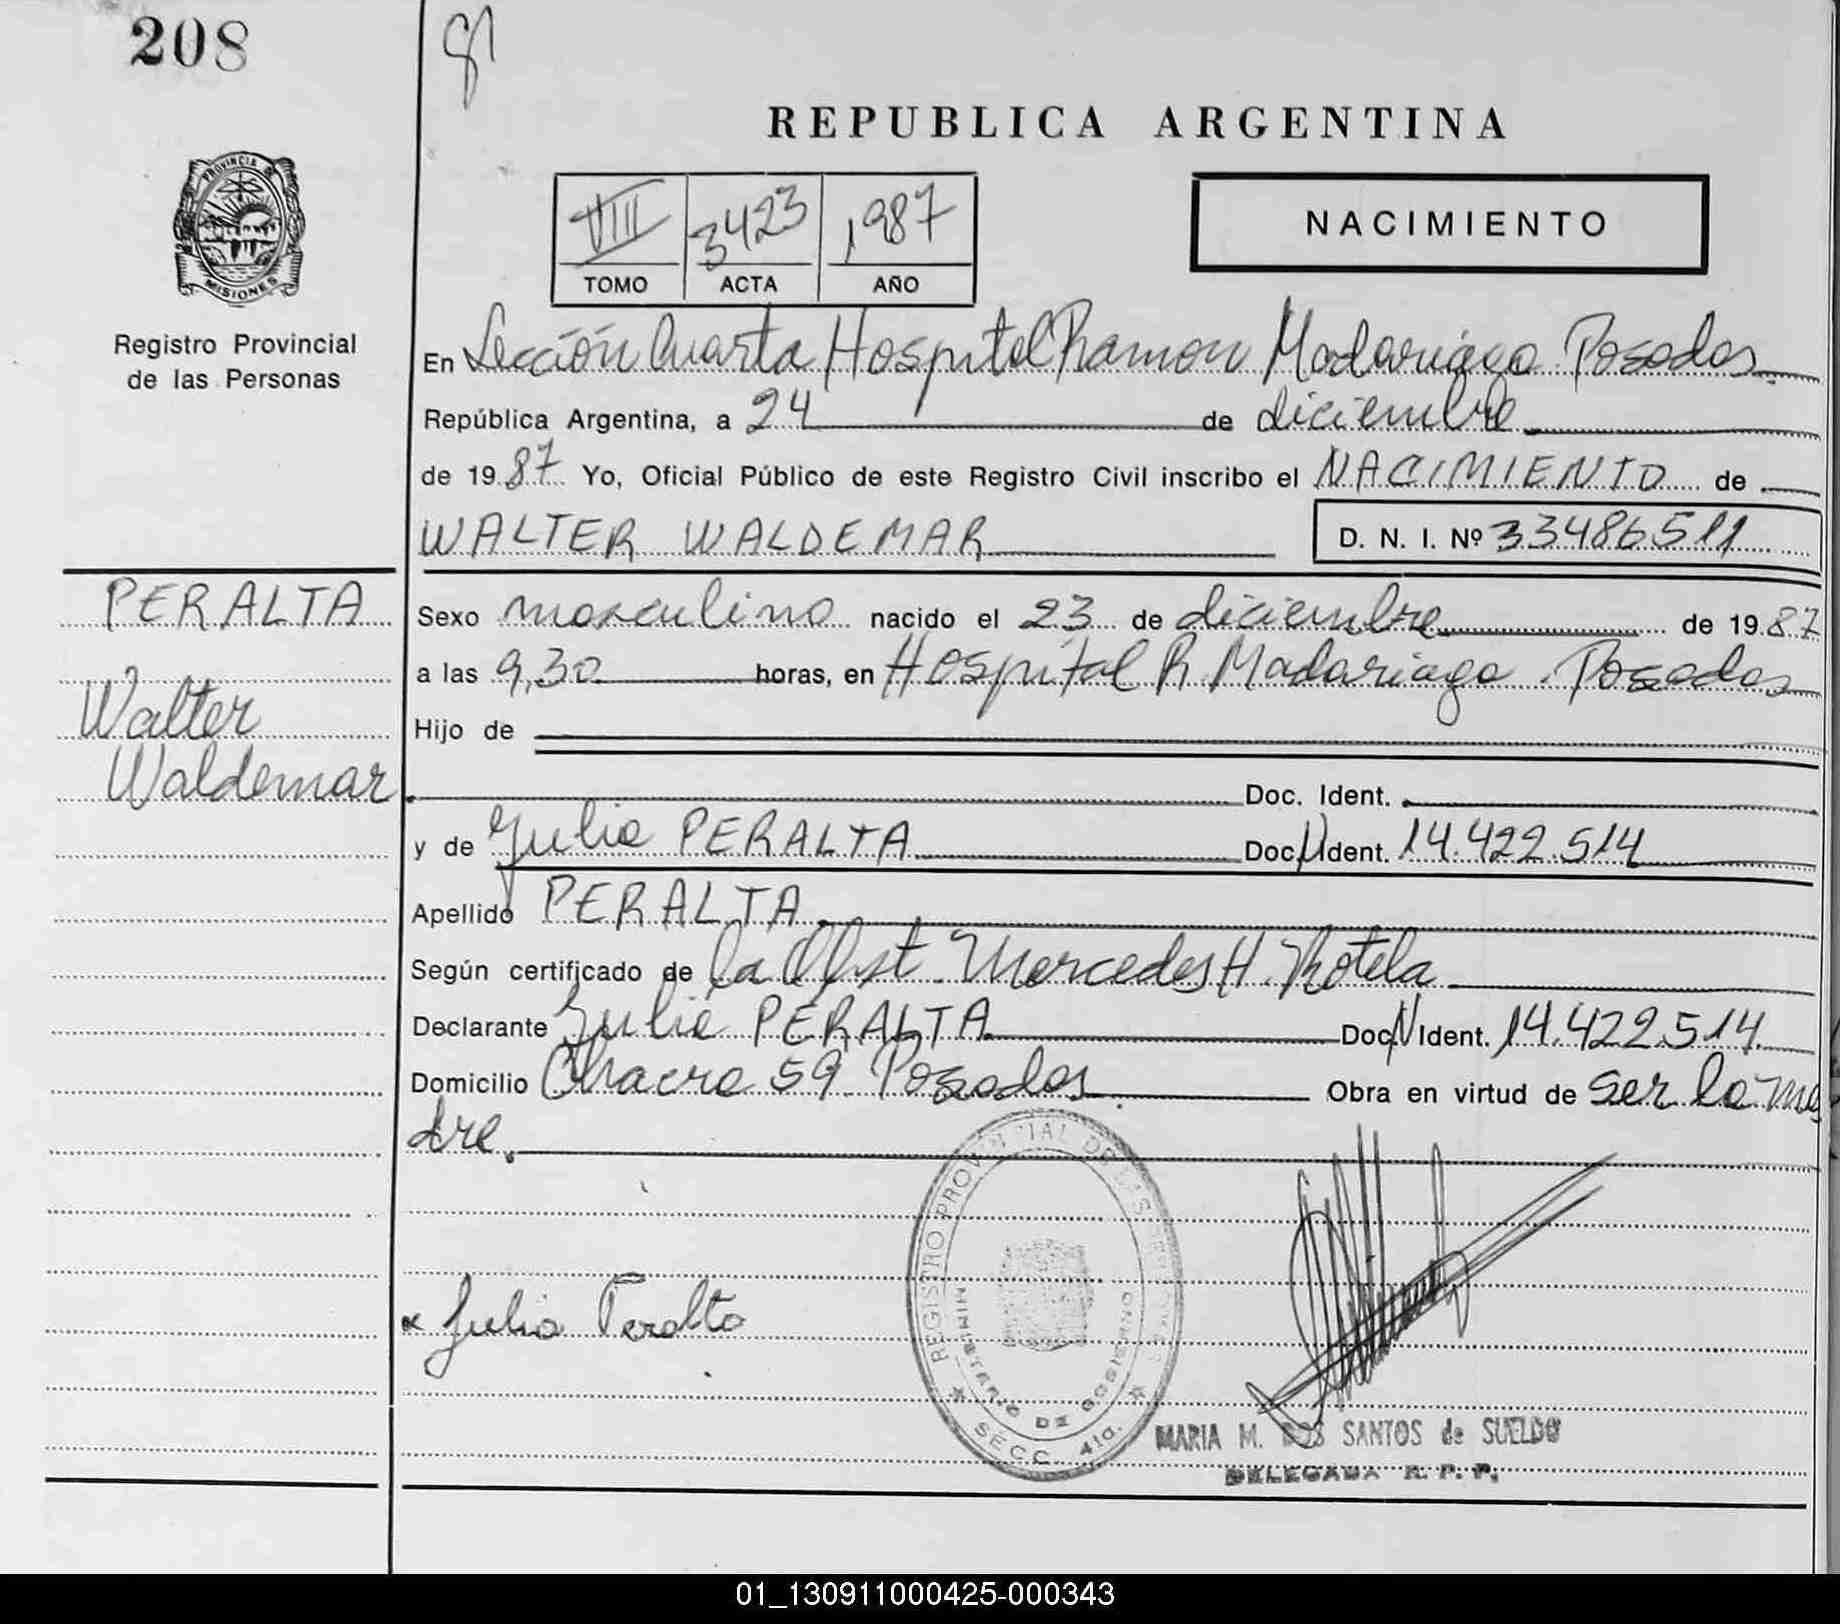 208
81
REPUBLICA ARGENTINA
PROVINCIA DE
MISIONES
Registro Provincial
de las Personas
VIII 3423 1987
TOMO ACTA AÑO
NACIMIENTO
En Sección Cuarta Hospital Ramon Madariaga Posadas
República Argentina, a 24 de diciembre
de 1987 Yo, Oficial Público de este Registro Civil inscribo el NACIMIENTO de
WALTER WALDEMAR D. N. I. Nº 33486511
PERALTA
Walter
Waldemar
Sexo masculino nacido el 23 de diciembre de 1987
a las 9,30 horas, en Hospital R. Madariaga. Posadas
Hijo de
Doc. Ident.
y de Julia PERALTA Doc. Ident. 14.422.514
Apellido PERALTA
Según certificado de la Obst. Mercedes H. Rotela
Declarante Julia PERALTA Doc. Ident. 14.422.514
Domicilio Chacra 59 Posadas Obra en virtud de ser la ma
dre.
REGISTRO PROVINCIAL DE LAS PERSONAS
MINISTERIO DE GOBIERNO
SECC. 4ta.
Julia Peralta
MARIA M. DOS SANTOS de SUELDO
DELEGADA R. P. P.
01_130911000425-000343